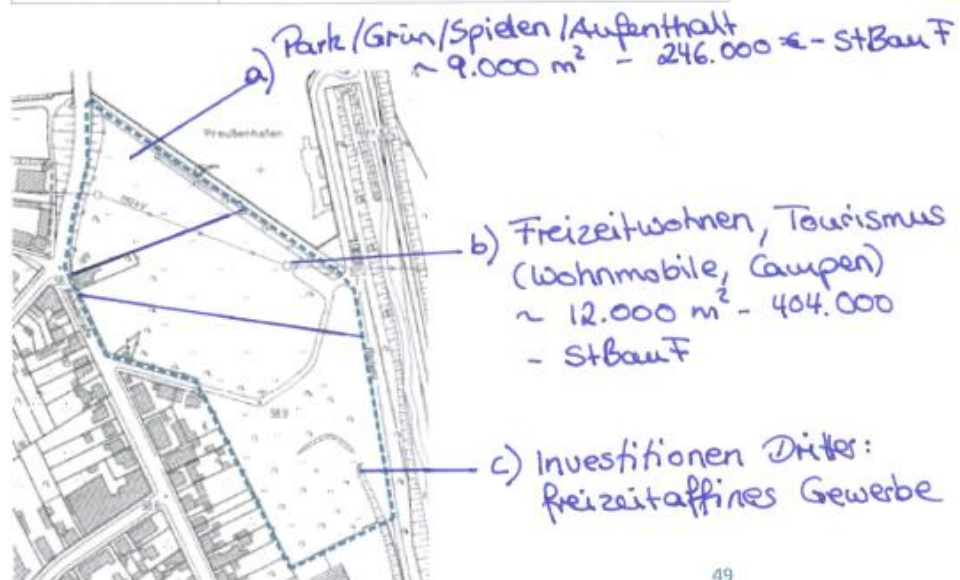 a) Park/Grün/Spielen/Aufenthalt
~ 9.000 m² - 246.000 € - StBauF
Preußenhafen
b) Freizeitwohnen, Tourismus
(Wohnmobile, Campen)
~ 12.000 m² - 404.000
- StBauF
c) Investitionen Dritter:
freizeitaffines Gewerbe
49